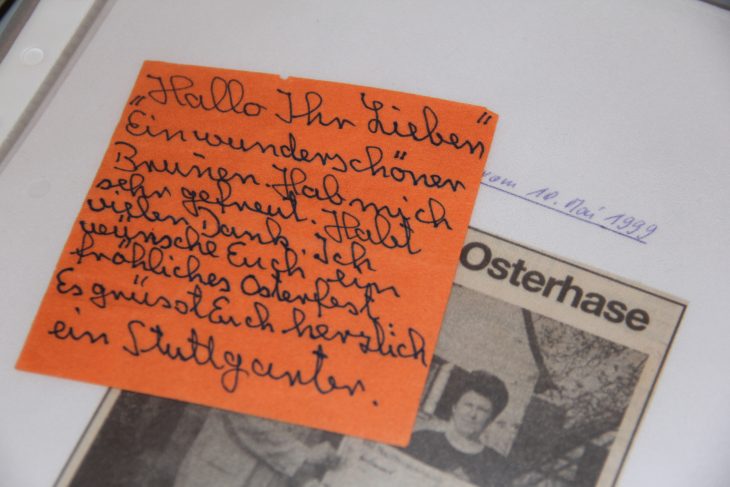 „Hallo Ihr Lieben"
Ein wunderschöner
Brunnen. Hab mich
sehr gefreut. Habt
vielen Dank. Ich
wünsche Euch ein
fröhliches Osterfest
Es grüsst Euch herzlich
ein Stuttgarter.
vom 10. Mai 1999
Osterhase